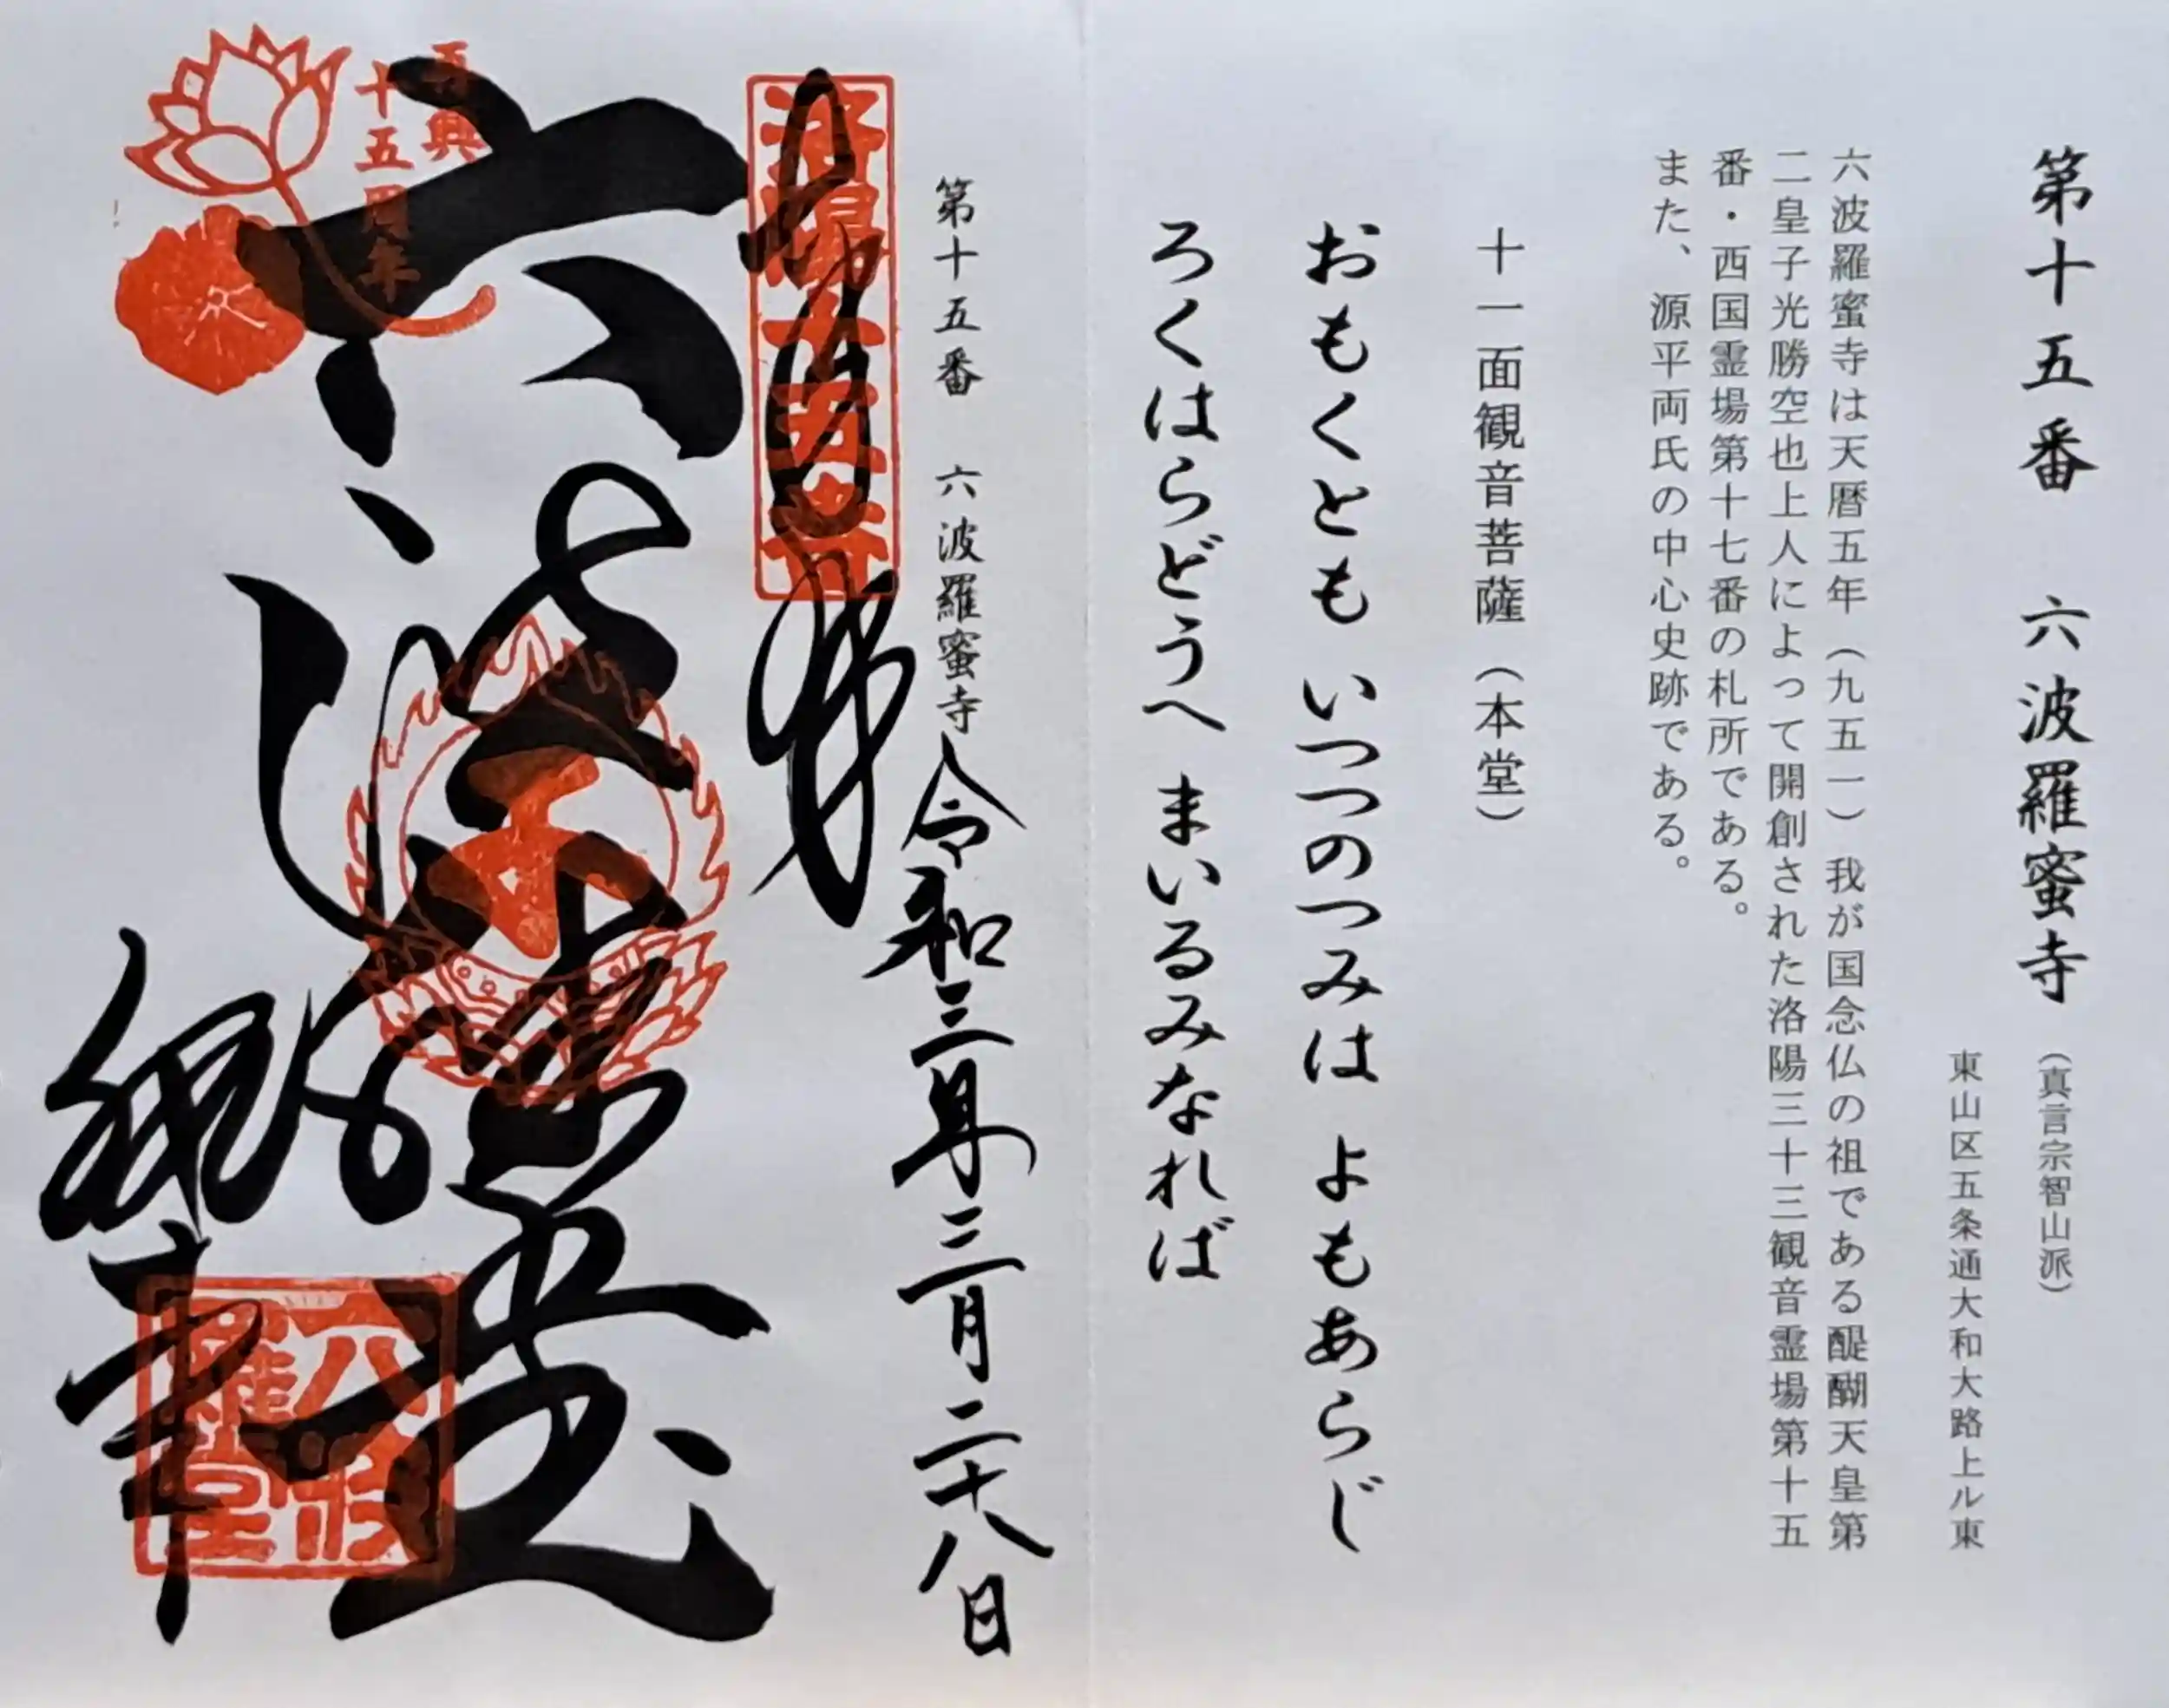 第十五番 六波羅蜜寺（真言宗智山派）
東山区五条通大和大路上ル東
六波羅蜜寺は天暦五年（九五一）我が国念仏の祖である醍醐天皇第
二皇子光勝空也上人によって開創された洛陽三十三観音霊場第十五
番・西国霊場第十七番の札所である。
また、源平両氏の中心史跡である。
十一面観音菩薩（本堂）
おもくとも いつつのつみは よもあらじ
ろくはらどうへ まいるみなれば
第十五番 六波羅蜜寺
令和三年三月二十八日
洛陽十五番
再興
十五周年
六波羅堂